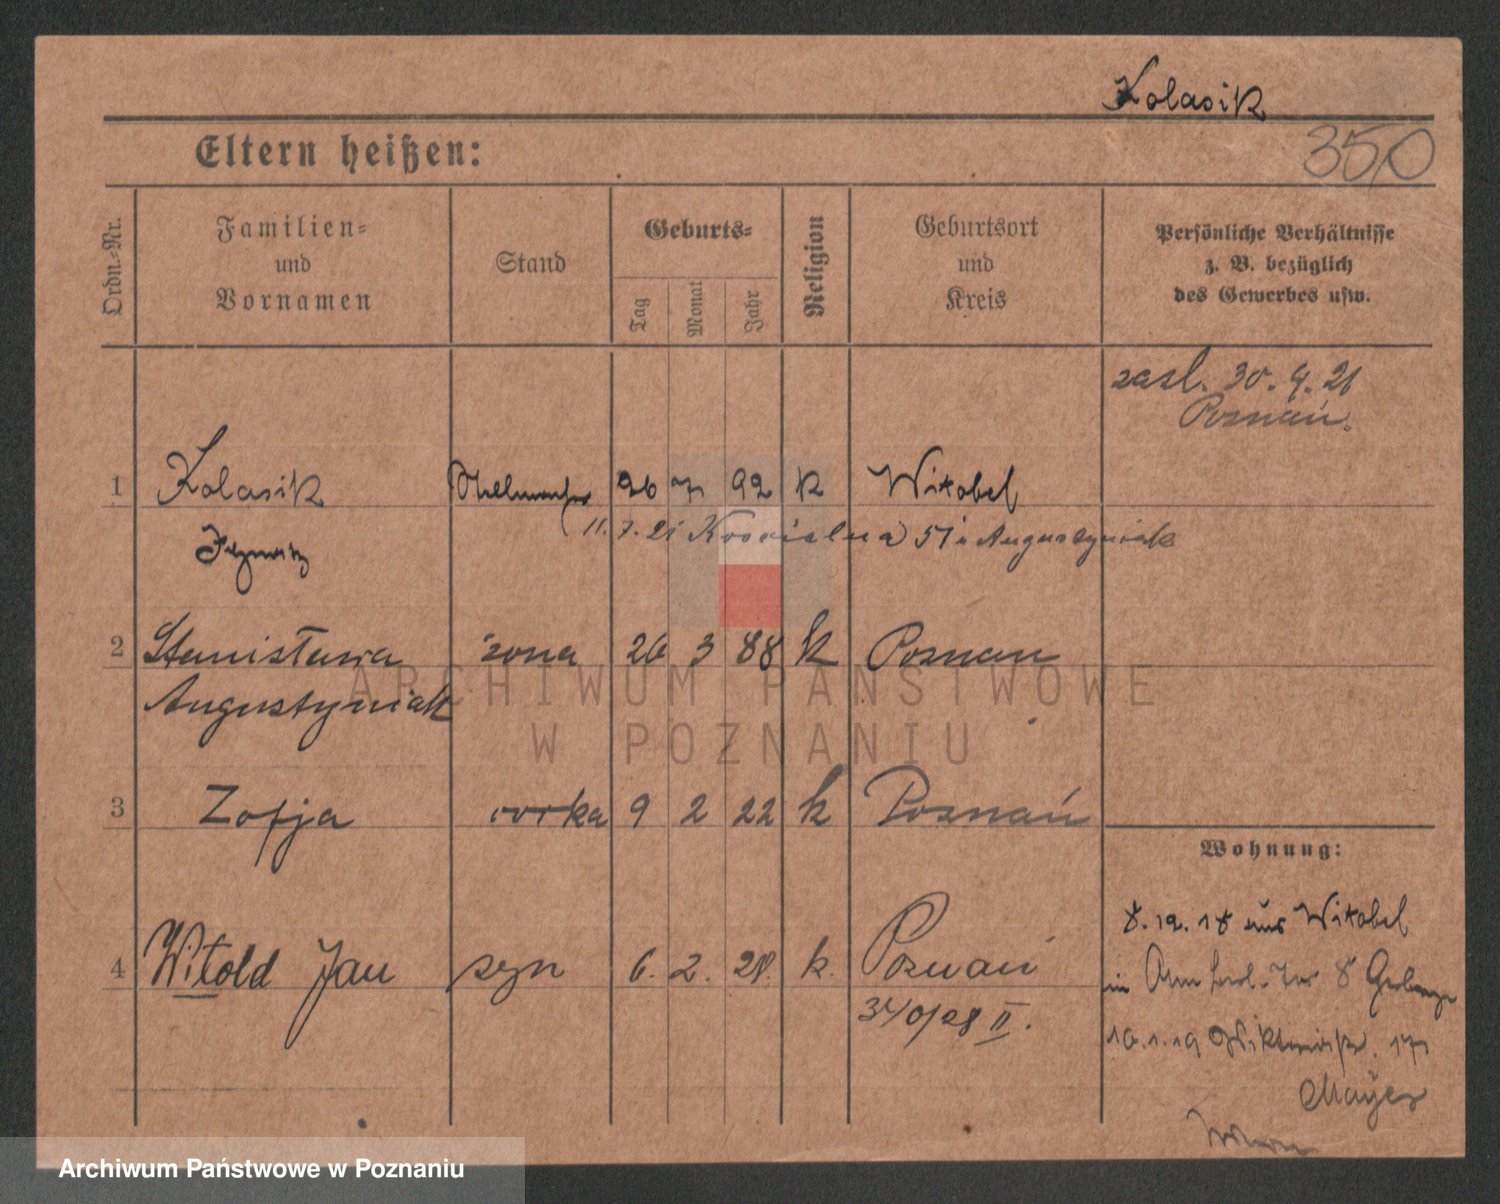 Kolasik
350
Eltern heißen:
Ordn.-Nr.
Familien-
und
Vornamen
Stand
Geburts-
Tag
Monat
Jahr
Religion
Geburtsort
und
Kreis
Persönliche Verhältnisse
z. B. bezüglich
des Gewerbes usw.
zasl. 30. 9. 21
Poznań.
1 Kolasik 26 7 92 k Witobel
11. 7. 21 Kościelna 51 u Augustyniak
Ignatz
2 Stanisława żona 26 3 88 k Poznan
Augustyniak
3 Zofja córka 9 2 22 k Poznań
Wohnung:
8. 12. 18 aus Witobel
4 Witold Jan syn 6. 2. 28. k. Poznań
in 8
340/28 II.
10. 1. 19 17
Mayer
ARCHIWUM PAŃSTWOWE
W POZNANIU
Archiwum Państwowe w Poznaniu